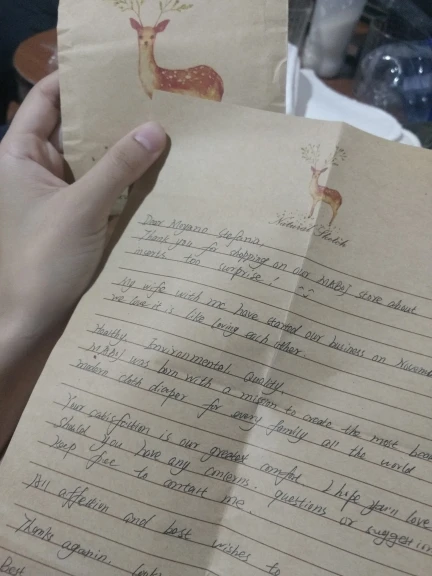 Dear
Thank you for shopping on our store about
month too surprise!
My wife with me have started our business on November
we love it is like loving each other.
Healthy, Environmental, Quality.
was born with a mission to create the most
modern cloth diaper for every family all the world
Your satisfaction is our greatest comfort I hope you'll love
should you have any concerns, questions or suggestion
keep free to contact me.
All affection and best wishes to
Thanks again,
Best